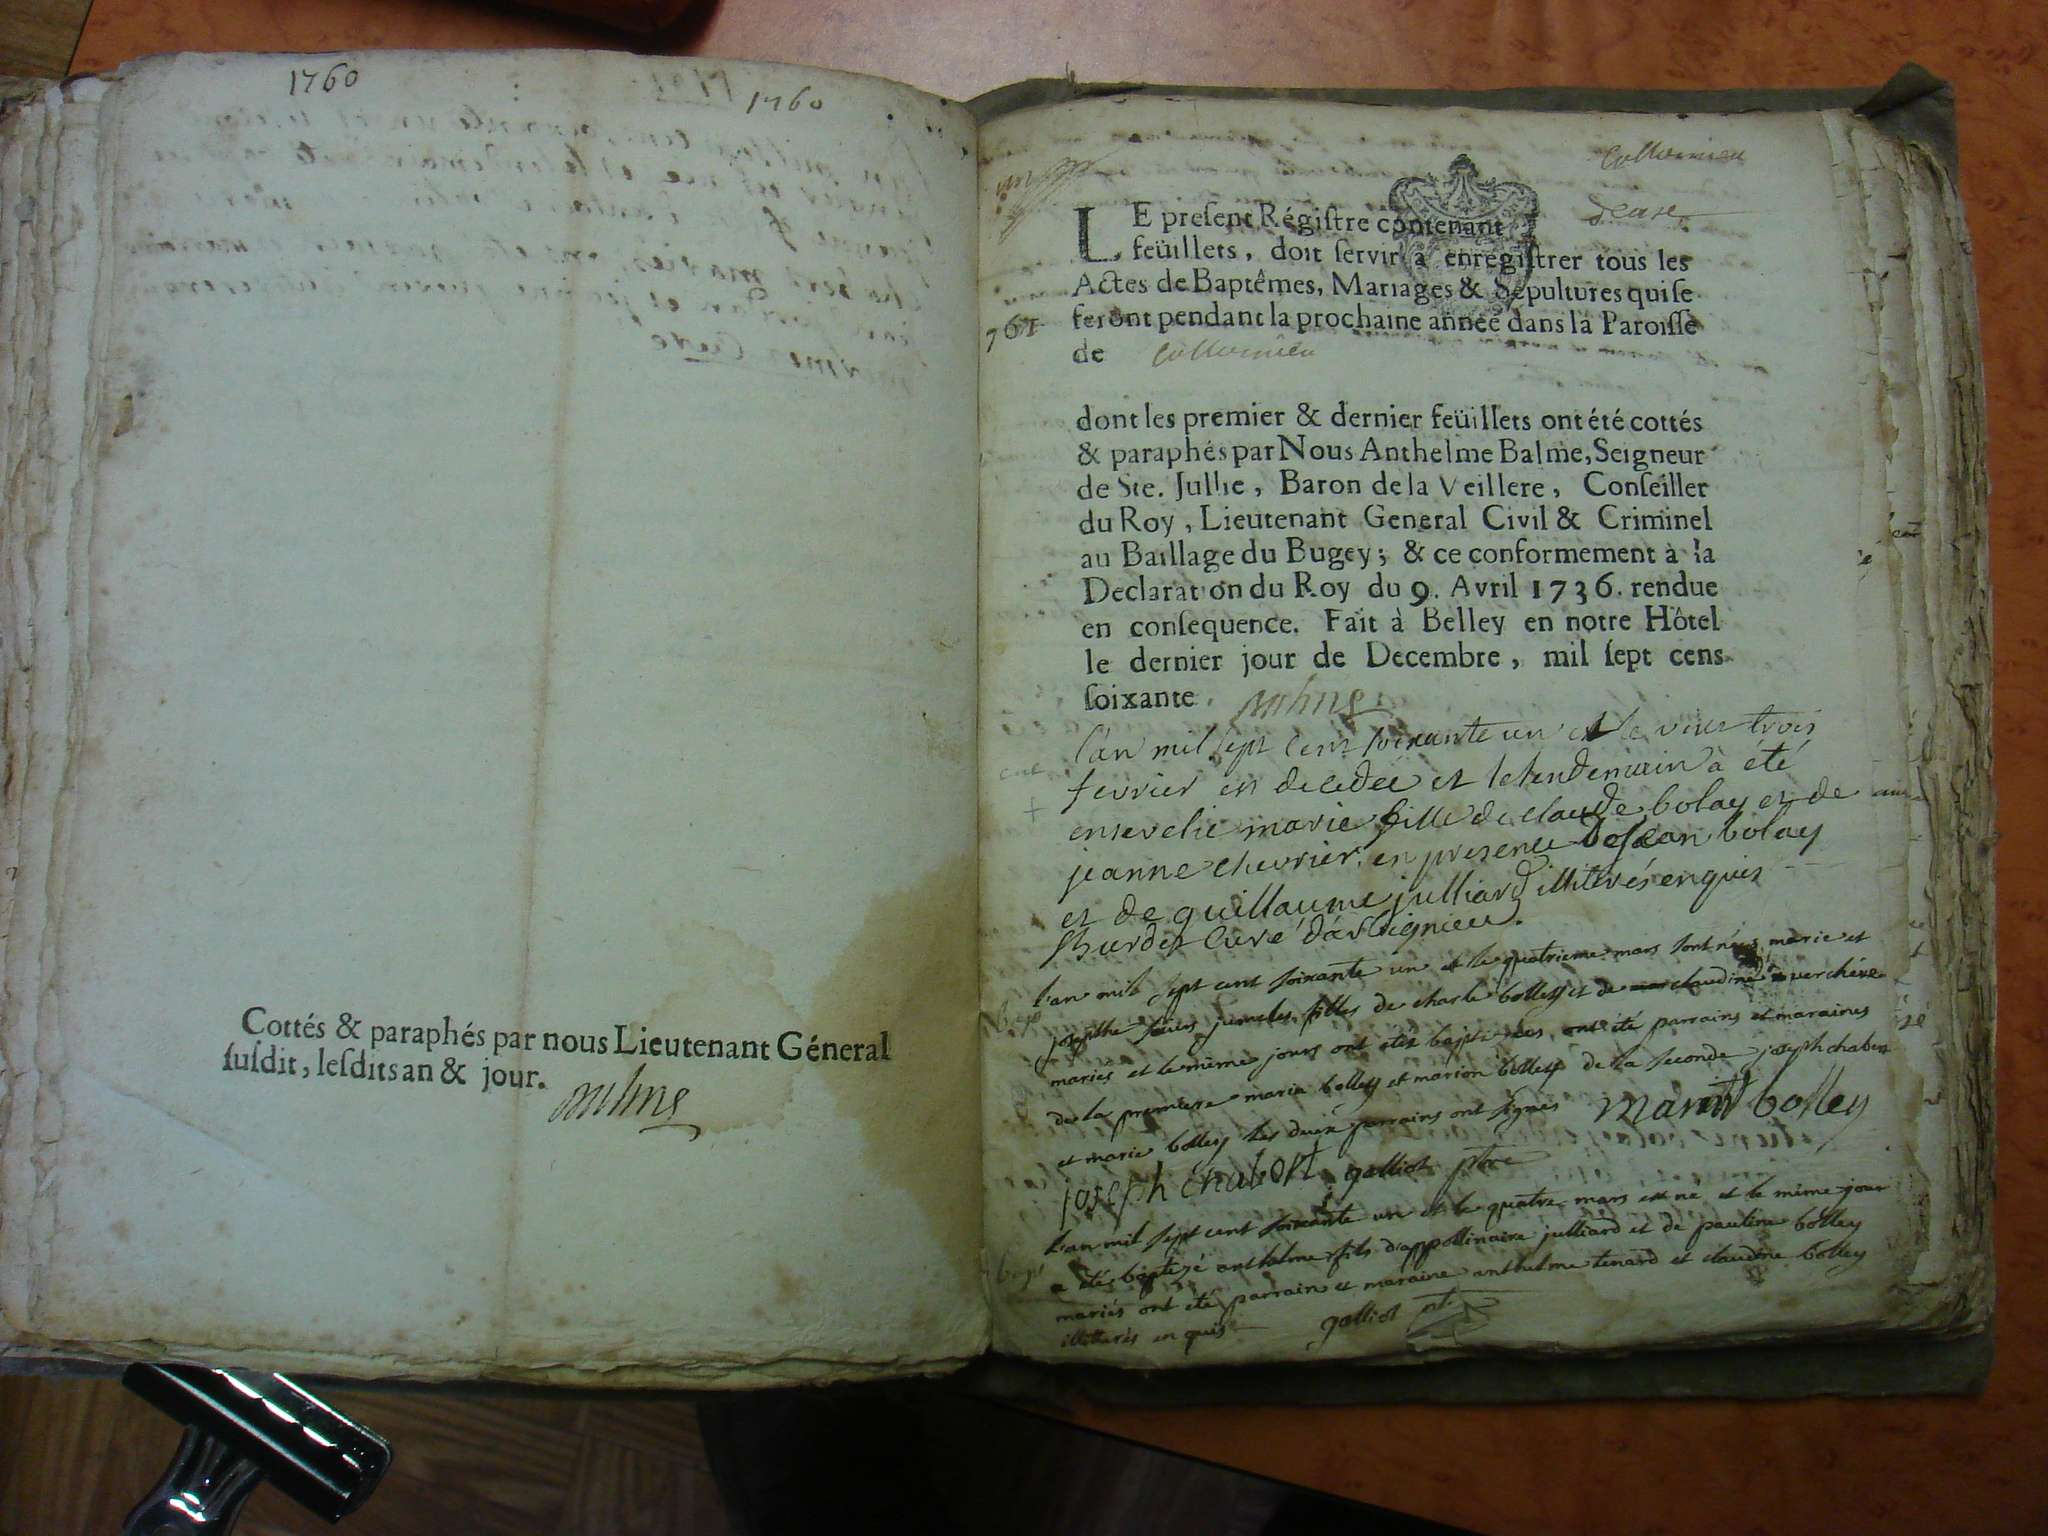 1760
1760
Cottés & paraphés par nous Lieutenant Géneral
ſuſdit, leſdits an & jour.
Collomieu
761
LE preſent Régiſtre contenant
feüillets, doit ſervir à enregiſtrer tous les
Actes de Baptêmes, Mariages & Sepultures qui ſe
feront pendant la prochaine année dans la Paroiſſe
de Collomieu
dont les premier & dernier feüillets ont été cottés
& paraphés par Nous Anthelme Balme, Seigneur
de Ste. Jullie, Baron de la Veillere, Conſeiller
du Roy, Lieutenant General Civil & Criminel
au Baillage du Bugey; & ce conformement à la
Declaration du Roy du 9. Avril 1736. rendue
en conſequence. Fait à Belley en notre Hôtel
le dernier jour de Decembre, mil ſept cens
ſoixante.
l'an mil sept cent soixante un et le vint trois
fevrier est decedée et le lendemain a été
ensevelie marie fille de claude bolay et de
jeanne chevrier, en presence de Jean bolay
et de guillaume julliard illiterés enquis
curé d'arbignieu.
l'an mil sept cent soixante un et le quatrieme mars sont nées marie et
josepthe jumeles filles de charle bolley et de claudine verchére
mariés et le même jours ont étés baptisées, ont été parrains et maraines
de la premiere maria bolley et marion bolley de la seconde joseph chabert
et marie bolley les deux parrains ont signés bolley
joseph chabort galliot ptre
L'an mil sept cent soixante un et le quatre mars est né et le même jour
a été baptizé anthelme fils d'appollinaire julliard et de pauline bolley
mariés ont été parrain et maraine anthelme tenard et claudine bolley
illitterés enquis galliot pt.